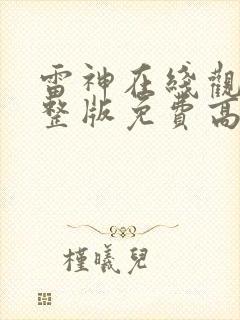 雷神在綫觀
整版免費高
槿曦兒